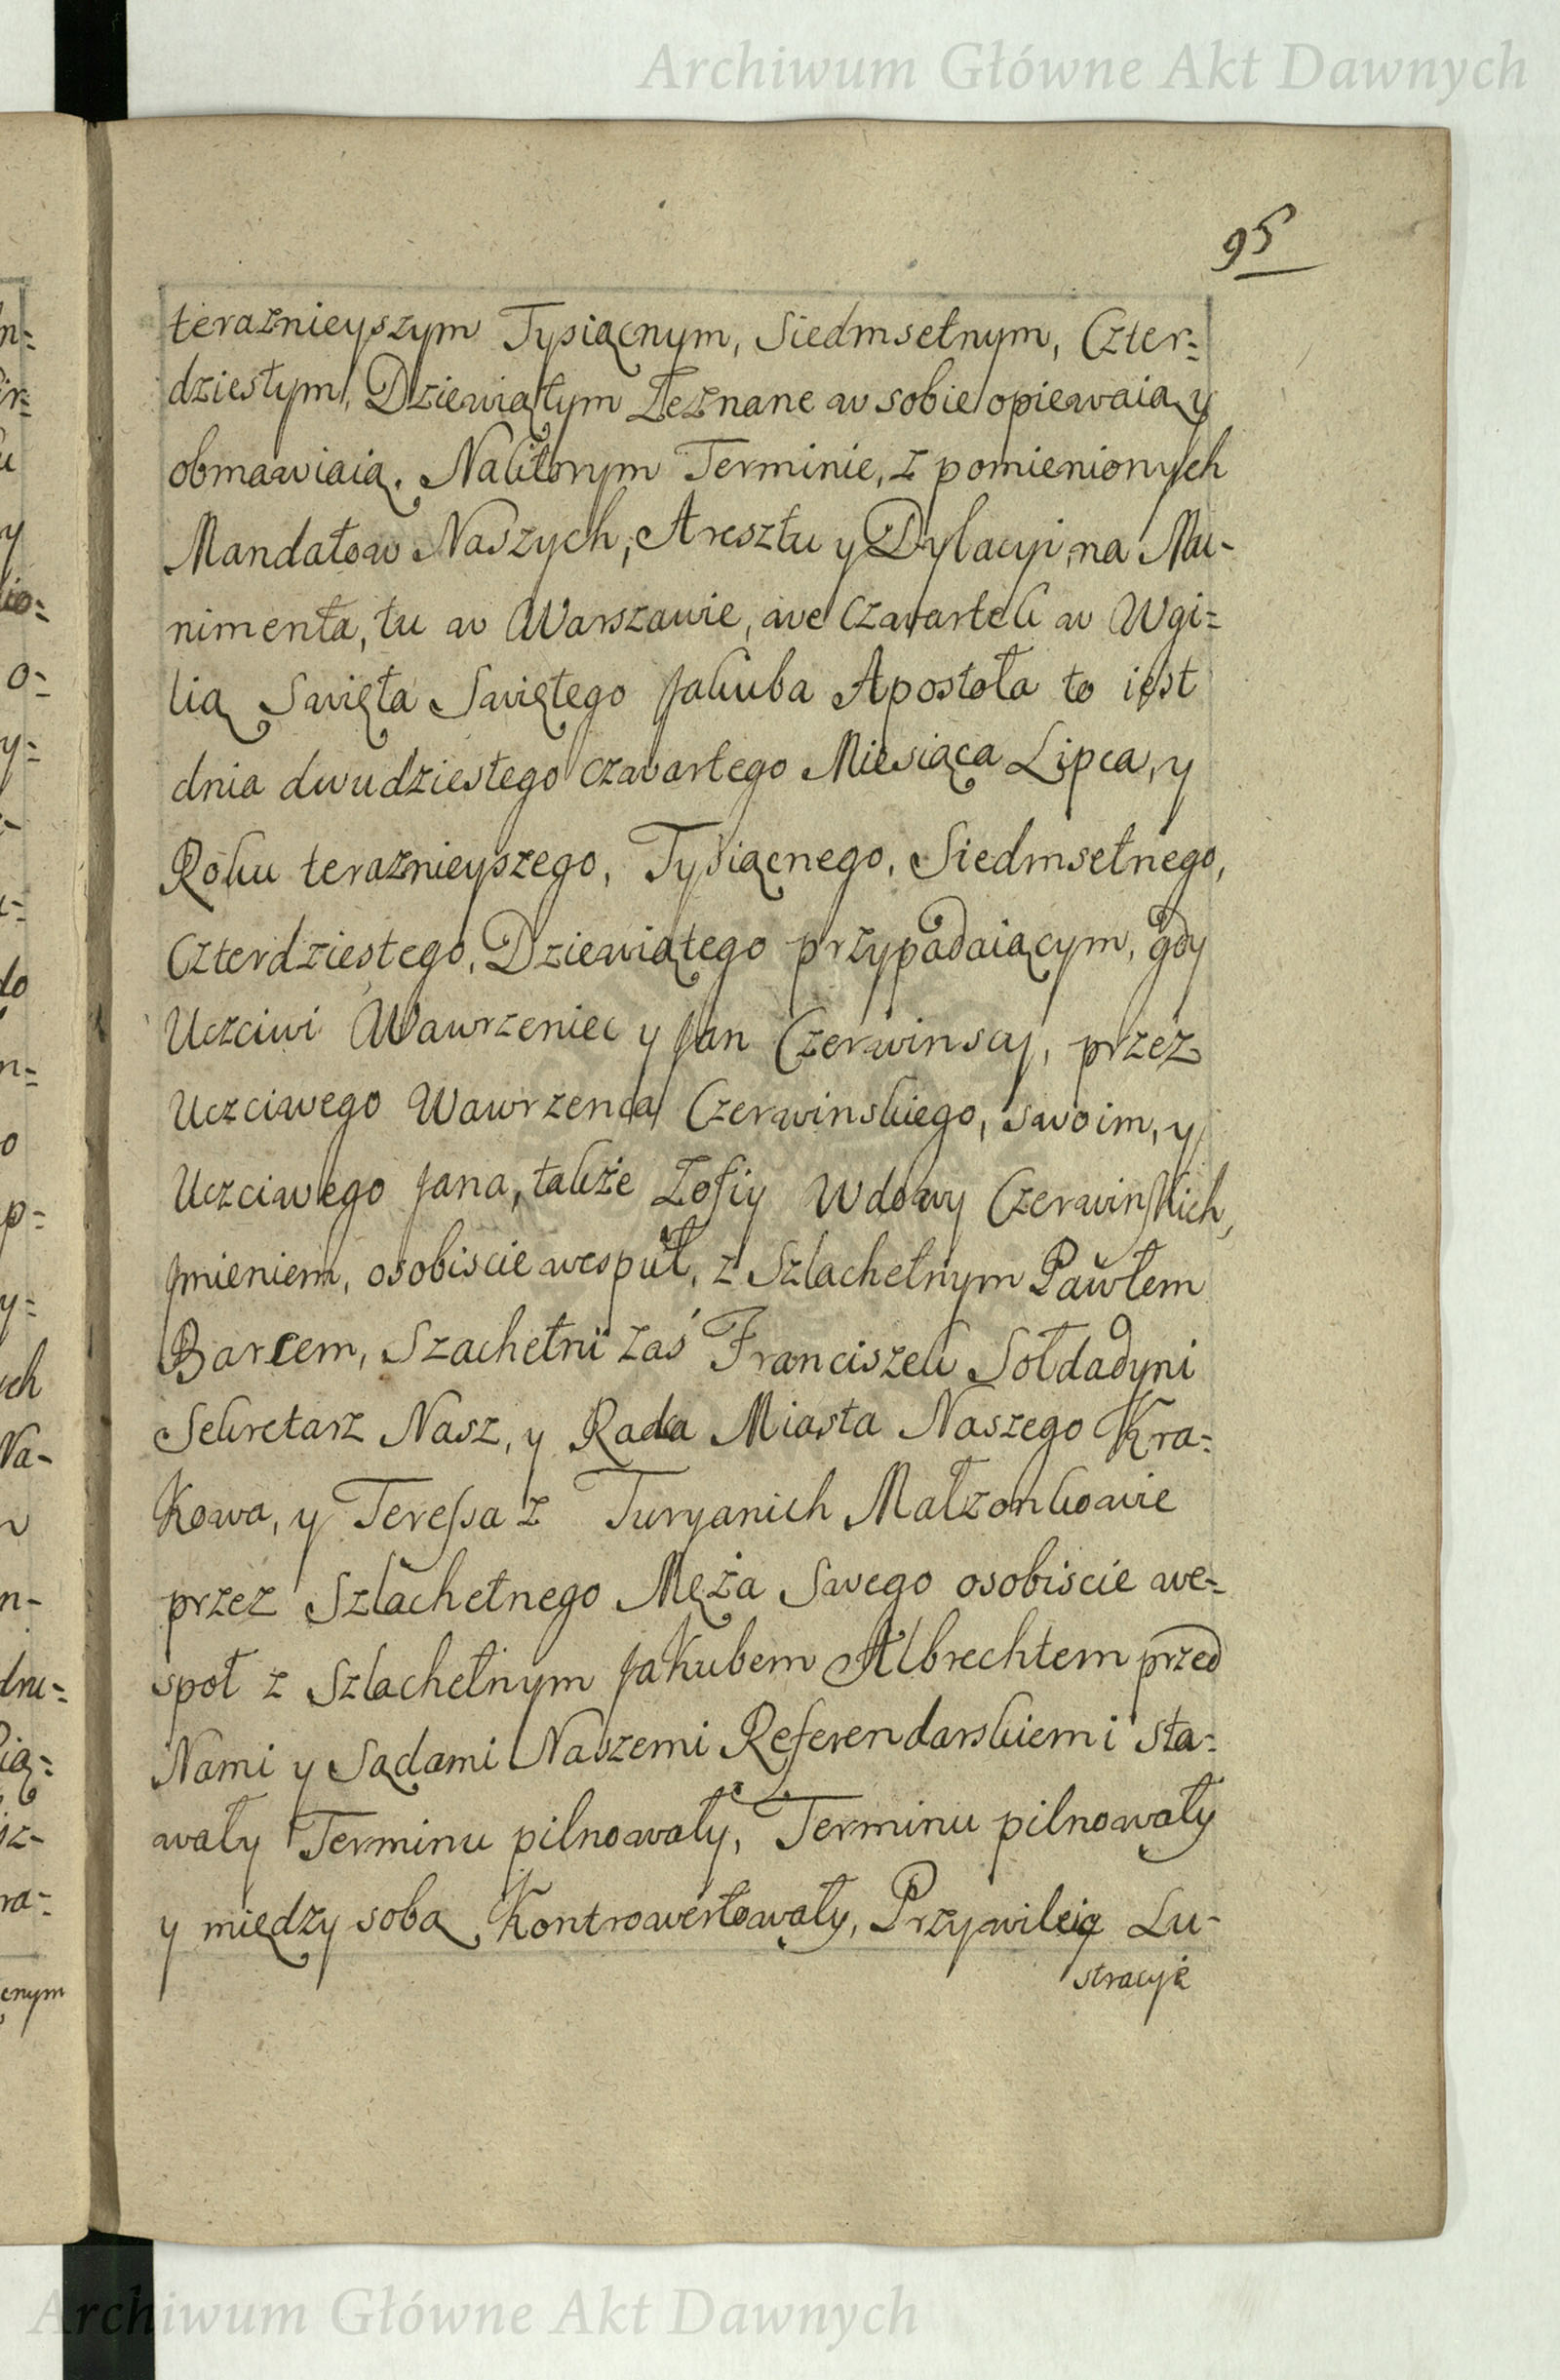 Archiwum Główne Akt Dawnych
95
teraznieyszym Tysiącnym, Siedmsetnym, Czter=
dziestym, Dziewiątym Zeznane w sobie opiewaią y
obmawiaią. Naktorym Terminie, z pomienionych
Mandatow Naszych, Aresztu y Dylacyi, na Mu-
nimenta, tu w Warszawie, we Czwartek w Wgi=
lią Swięta Swiętego Jakuba Apostoła to iest
dnia dwudziestego czwartego Miesiąca Lipca, y
Roku teraznieyszego, Tysiącnego, Siedmsetnego,
Czterdziestego, Dziewiątego przypadaiącym, gdy
Uczciwi Wawrzeniec y Jan Czerwinscy, przez
Uczciwego Wawrzenca Czerwinskiego, swoim, y
Uczciwego Jana, także Zofiy Wdowy Czerwinskich,
Jmieniem, osobiscie wespuł, z Szlachetnym Pawłem
Barcem, Szachetni zaś Franciszek Sołdadyni
Sekretarz Nasz, y Radca Miasta Naszego Kra=
kowa, y Teressa z Turyanich Małzonkowie
przez Szlachetnego Męża Swego osobiscie we=
społ z Szlachetnym Jakubem Albrechtem przed
Nami y Sądami Naszemi Referendarskiemi sta=
wały Terminu pilnowały, Terminu pilnowały
y między sobą Kontrowertowały, Przywileią Lu-
stracyie
Archiwum Główne Akt Dawnych